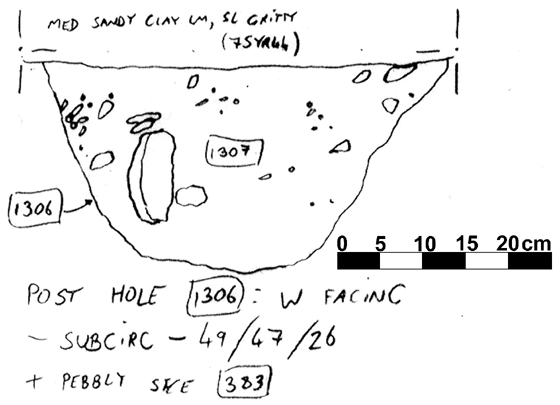 MED SANDY CLAY LM, SL GRITTY
(7.5YR44)
1307
1306
0 5 10 15 20cm
POST HOLE 1306: W FACING
- SUBCIRC - 49/47/26
+ PEBBLY 383